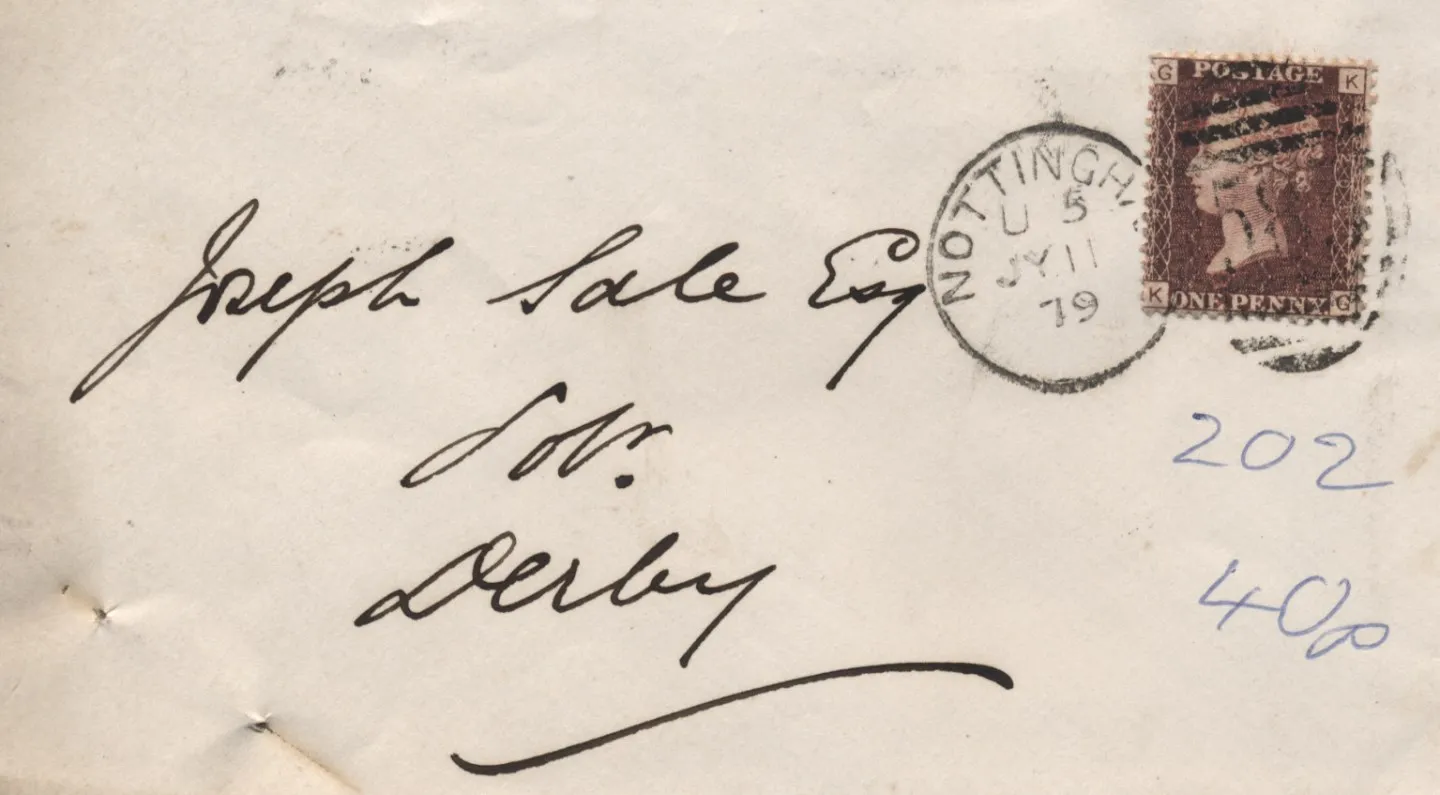 G POSTAGE K
NOTTINGHA
U 5
JY 11
79
K ONE PENNY G
Joseph Sale Esq
Solr.
Derby
202
40p